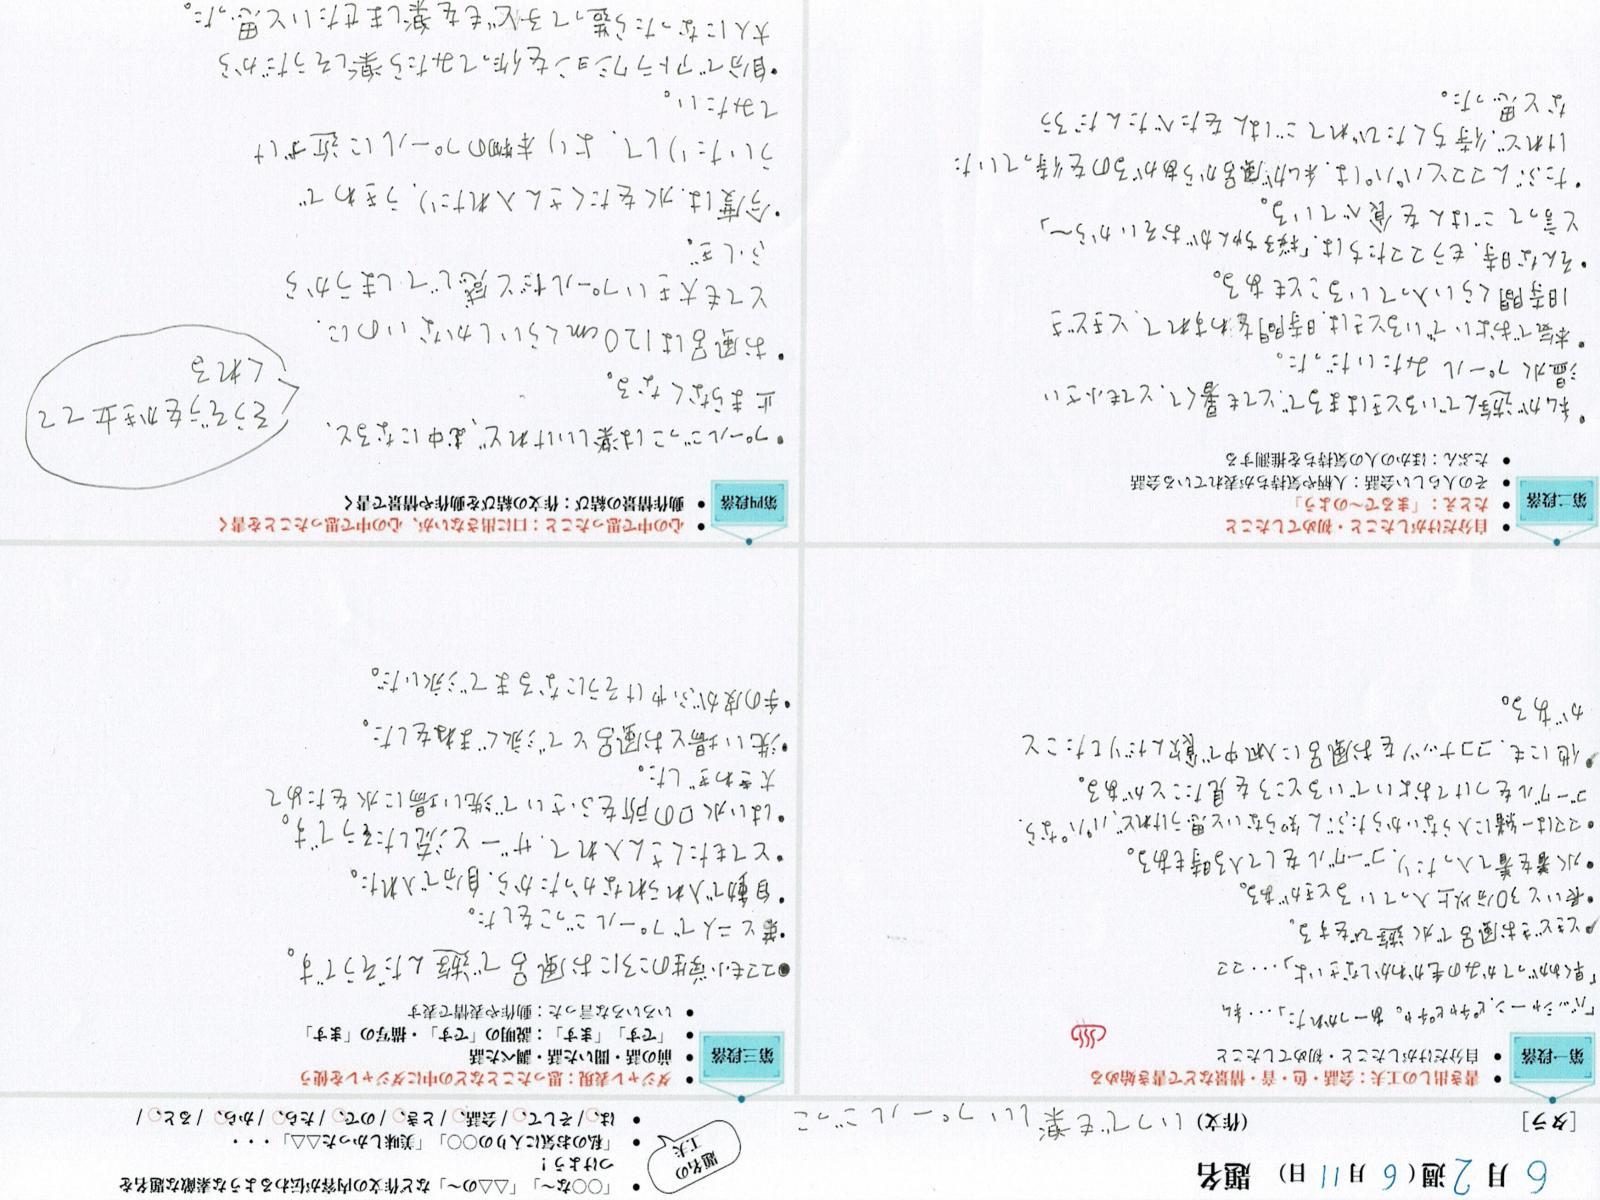 6月2週(6月11日) 題名
「○○な~」「△△の~」など作文の内容が伝わるような素敵な題名を
つけよう!
「私のお気に入りの○○」「美味しかった△△」・・・
は、/そして、/会話、/とき、/ので、/たら、/から、/ると、/
題名の
工夫
[タラ]
(作文) いつでも楽しいプールごっこ
第一段落
書き出しの工夫:会話・色・音・情景などで書き始める
自分だけがしたこと・初めてしたこと
「バッシャーン、ピチャピチャ。あーつかれた」……私
「早くあがってかみの毛かわかしなさいよ」……ココ
・ときどきお風呂で水遊びをする。
・長いと30分以上入っているときがある。
・水着を着て入ったり、ゴーグルをして入る時もある。
・ココは一緒に入らないからたぶん知らないと思うけれど、パパなら、
ゴーグルをつけておよいでいるところを見たことがある。
・他にも、ココナッツをお風呂に入れ中で飲んだりしたこと
がある。
第二段落
自分だけがしたこと・初めてしたこと
たとえ:「まるで~のよう」
その人らしい会話:人柄や気持ちが表れている会話
たぶん:ほかの人の気持ちを推測する
・私が遊んでいるときはまるで、とても暑くて、とても小さい
温水プールみたいだった。
・本気でおよいでいるときは、時間をわすれて、ときどき
1時間くらい入っていることもある。
・そんな時、もうココたちは、「ちゃんがおそいから~」
と言ってごはんを食べている。
・たぶんココとパパは、私がお風呂からあがるのを待っていた
けれど、待ちくたびれてごはんをたべたんだろう
なと思った。
第三段落
ダジャレ表現:思ったことなどの中にダジャレを使う
前の話・聞いた話・調べた話
「です」「ます」:説明の「です」・描写の「ます」
いろいろな言った:動作や表情で表す
・ココも小学生のころにお風呂で遊んだそうです。
・弟と二人でプールごっこをした。
・自動で入れられなかったから、自分で入れた。
・とてもたくさん入れて、ザーと流したそうです。
・はい水口の所をふさいで洗い場に水をためて
大さわぎした。
・洗い場とお風呂とで泳ぐまねをした。
・手の皮がふやけそうになるまで泳いだ。
第四段落
心の中で思ったこと:口に出さないが、心の中で思ったことを書く
動作情景の結び:作文の結びを動作や情景で書く
・プールごっこは楽しいけれど、夢中になると、
止まらなくなる。
そうぞうをかき立てて
くれる
・お風呂は120cmくらいしかないのに、
とても大きいプールだと感じてしまうから
ふしぎ。
・今度は、水をたくさん入れたり、うきわで
ういたりして、より本物のプールに近づけ
てみたい。
・自分でアトラクションを作ってみたら楽しそうだから
大人になったら造って子どもを楽しませたいと思った。